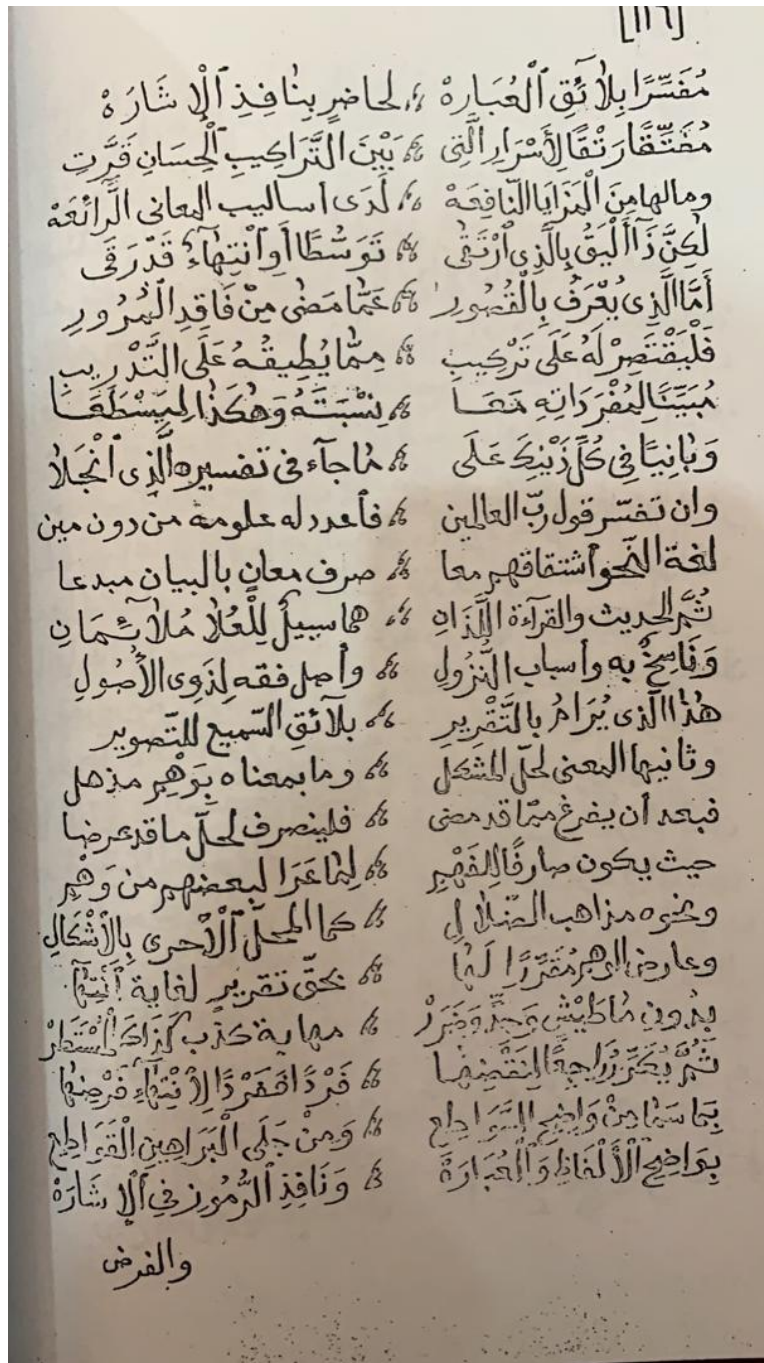 [١١٦]
مُفَسِّرًا بِلَآئِقِ ٱلْعُبَارِهْ لحاضرٍ بِنَافِذِ ٱلْإِشَارَهْ
مُفَتِّقًا رَتْقًا لِأَسْرَارِ الَّتِى بَيْنَ التَّرَاكِيبِ الْحِسَانِ قَرَّتِ
ومالها مِنَ الْمَزَايَا النَّافِعَهْ لَدَى أساليب المعانى الرَّائعَهْ
لَكِنَّ ذَا أَلْيَقُ بِالَّذِى ٱرْتَقَى تَوَسُّطًا أَوِ ٱنْتِهَآءً قَدْ رَقَى
أَمَّا الَّذِى يُعْرَفُ بِالْقُصُورِ عَمَّا مَضَى مِنْ فَاقِدِ الْمُرُورِ
فَلْيَقْتَصِرْ لَهُ عَلَى تَرْكِيبِ مِمَّا يُطِيقُهُ عَلَى التَّدْرِيبِ
مُبَيِّنًا لِمُفْرَدَاتِهِ مَعَا نِسْبَتَهُ وَهَكَذَا
وَبَانِيًا فِى كُلِّ ذَيْنِكَ عَلَى مَا جآءَ فى تفسيره الَّذِى ٱنْجَلَا
وان تفسّر قول ربّ العالمين فٱعدد له علومه من دون مين
لغة النّحو ٱشتقاقهم معا صرف معانٍ بالبيان مبدعا
ثُمَّ الحديث والقرآءة اللَّذَانِ هما سبيلٌ لِلْعُلَا مُلَآئِمَانِ
وَنَاسِخٌ به وأسباب النُّزُولِ وأصل فقه لِذَوِى الْأُصُولِ
هَذَا الَّذى يُرَامُ بِالتَّقْرِيرِ بلآئقِ السّميع للتّصوير
وثانيها المعنى لحلّ المشكل وما بمعناه بِوَهْمِ مذهل
فبعد أن يفرغ ممّا قد مضى فلينصرف لحلّ ما قد عرضا
حيث يكون صارفًا لِلْفَهْمِ لِمَا عَرَا لبعضهم من وَهْمِ
ونحوه مذاهب الضّلالِ كما المحلّ ٱلْأحرى بِالْأَشْكَالِ
وعارض الوهم مُقَرِّرًا لَهَا بحقّ تقريرٍ لغاية
بِدُونِ مَا طَيْشٍ مهابة كذب كَذَاكَ
ثُمَّ يُكَرُّ رَاجِعًا لِنَقْضِهَا فَرْدًا فَفَرْدًا لِٱنْتِهَآءِ فَرْضِهَا
بِمَا سَمَا مِنْ وَاضِحِ السَّوَاطِعِ وَمِنْ جَلَى الْبَرَاهِينِ الْقَوَاطِعِ
بِوَاضِحِ الْأَلْفَاظِ وَالْعُبَارَهْ وَنَافِذِ الرُّمُوزِ فِى ٱلْإِشَارَهْ
والفرض